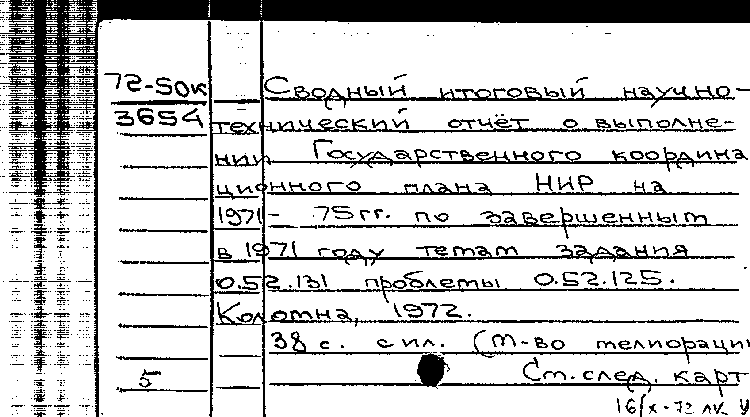 72-50к
3654
Сводный итоговый научно-
технический отчёт о выполне-
нии Государственного координа
ционного плана НИР на
1971-75гг. по завершенным
в 1971 году темам задания
0.52.131 проблемы 0.52.125.
Коломна, 1972.
38 с. с ил. (М-во мелиорации
5
См. след. карт
16/X-72